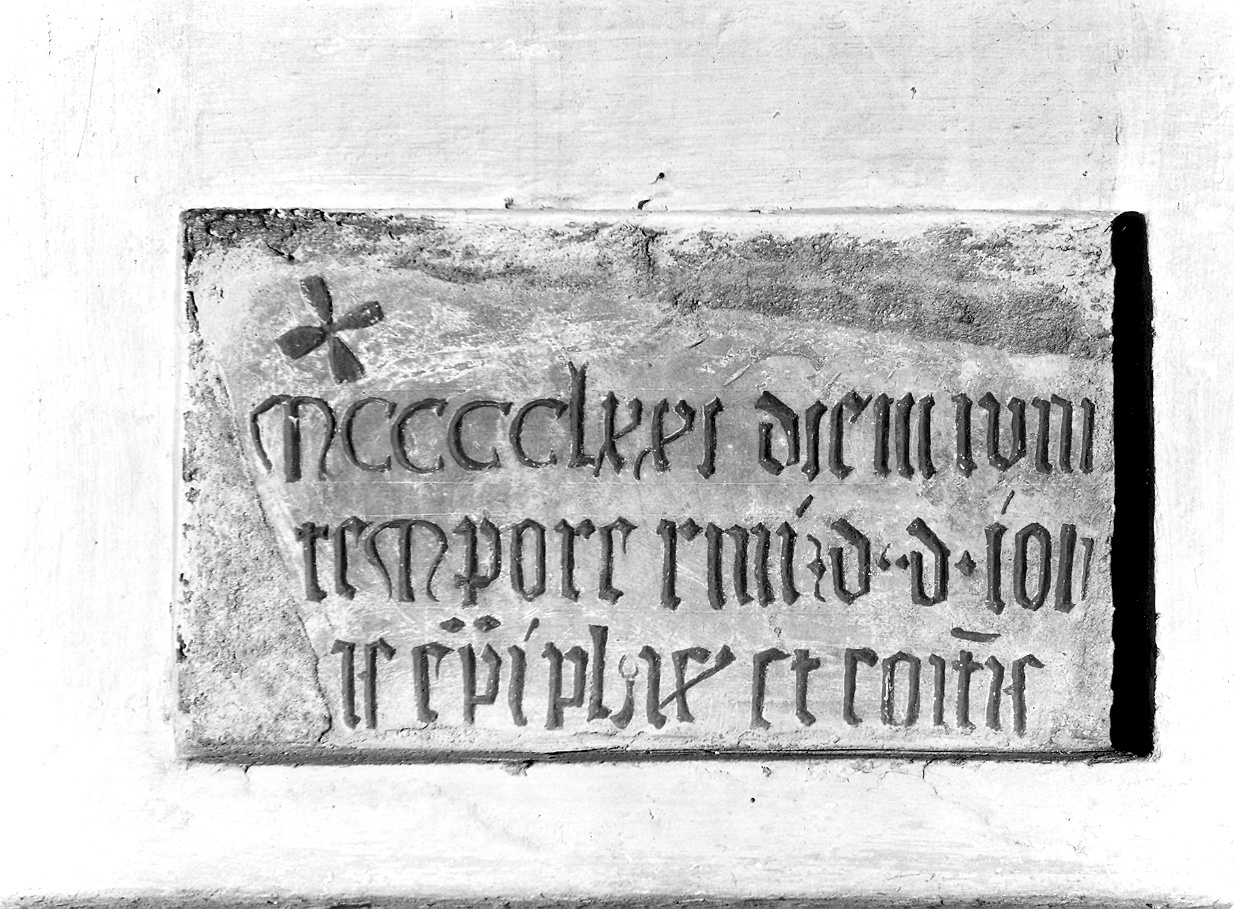 ✠ mcccclxxi diem iunii
tempore rmi · d · d · ioh
is epi plac et coitis